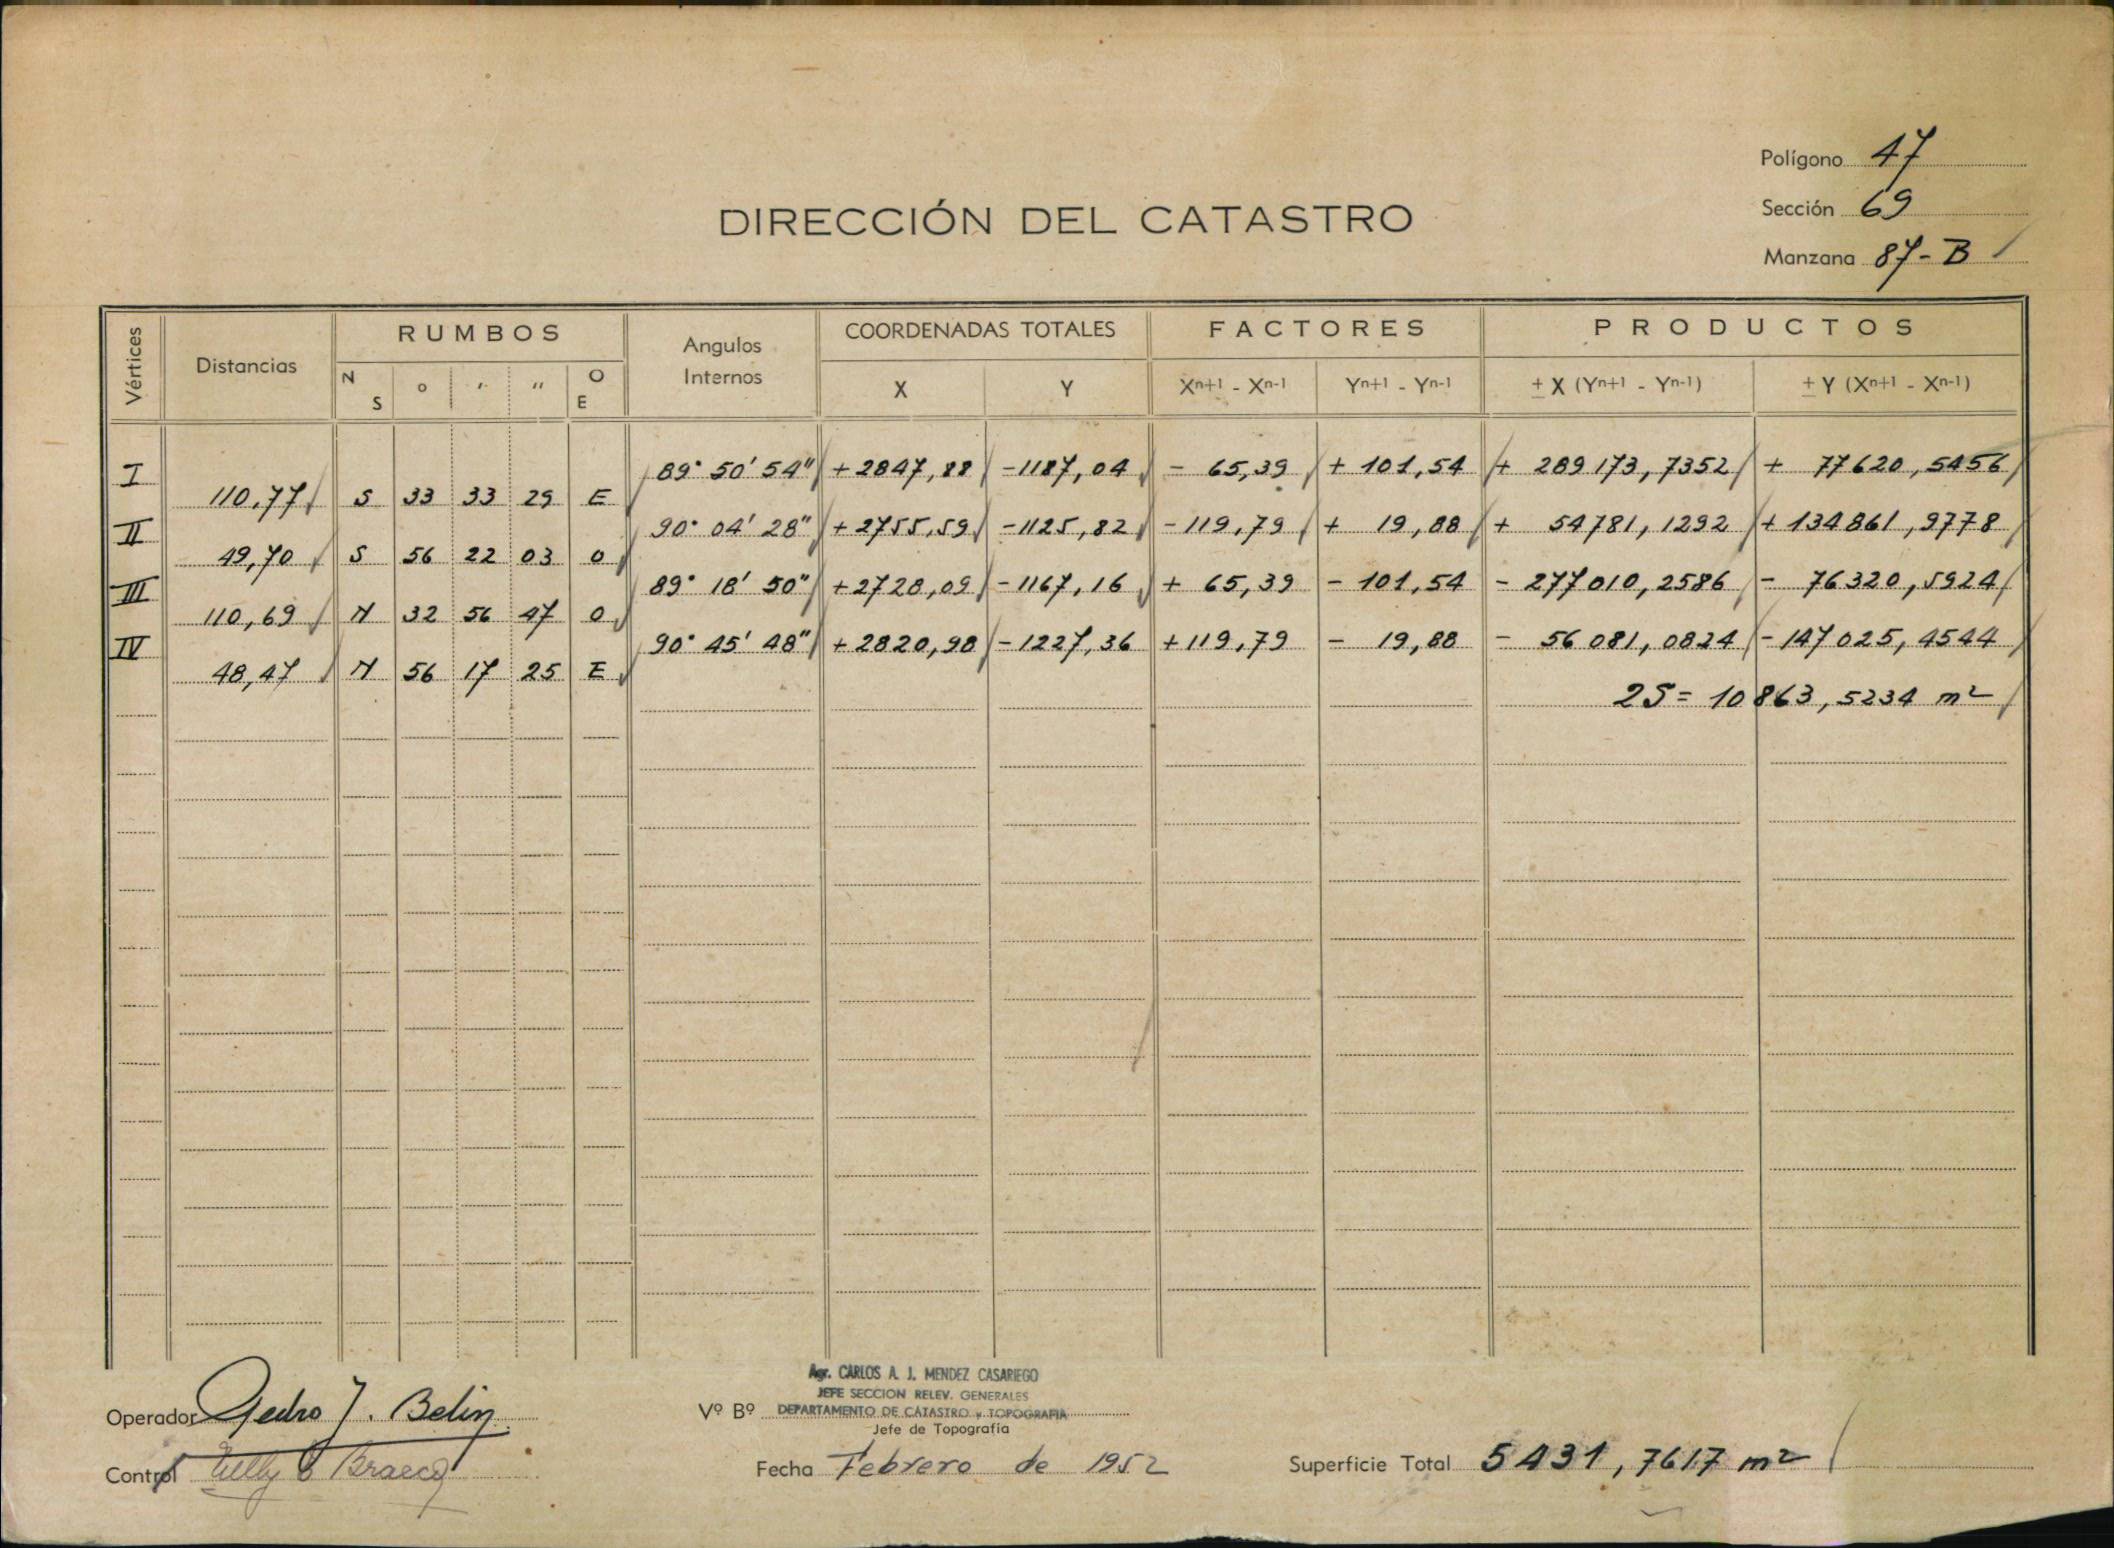 Polígono 47
Sección 69
Manzana 87-B
DIRECCIÓN DEL CATASTRO
Vértices
Distancias
RUMBOS
N S
o
'
"
O E
Angulos Internos
COORDENADAS TOTALES
X
Y
FACTORES
Xn+1 - Xn-1
Yn+1 - Yn-1
PRODUCTOS
± X (Yn+1 - Yn-1)
± Y (Xn+1 - Xn-1)
I 89° 50' 54" +2847,88 -1187,04 - 65,39 + 101,54 + 289173,7352 + 77620,5456
110,77 S 33 33 29 E
II 90° 04' 28" +2755,59 -1125,82 -119,79 + 19,88 + 54781,1292 +134861,9778
49,70 S 56 22 03 O
III 89° 18' 50" +2728,09 -1167,16 + 65,39 - 101,54 - 277010,2586 - 76320,5924
110,69 N 32 56 47 O
IV 90° 45' 48" +2820,98 -1227,36 +119,79 - 19,88 - 56081,0824 -147025,4544
48,47 N 56 17 25 E
2S = 10863,5234 m²
Operador Pedro J. Belin
Control
Agr. CARLOS A. J. MENDEZ CASARIEGO
JEFE SECCION RELEV. GENERALES
Vº Bº DEPARTAMENTO DE CATASTRO y TOPOGRAFIA
Jefe de Topografía
Fecha Febrero de 1952
Superficie Total 5431,7617 m²